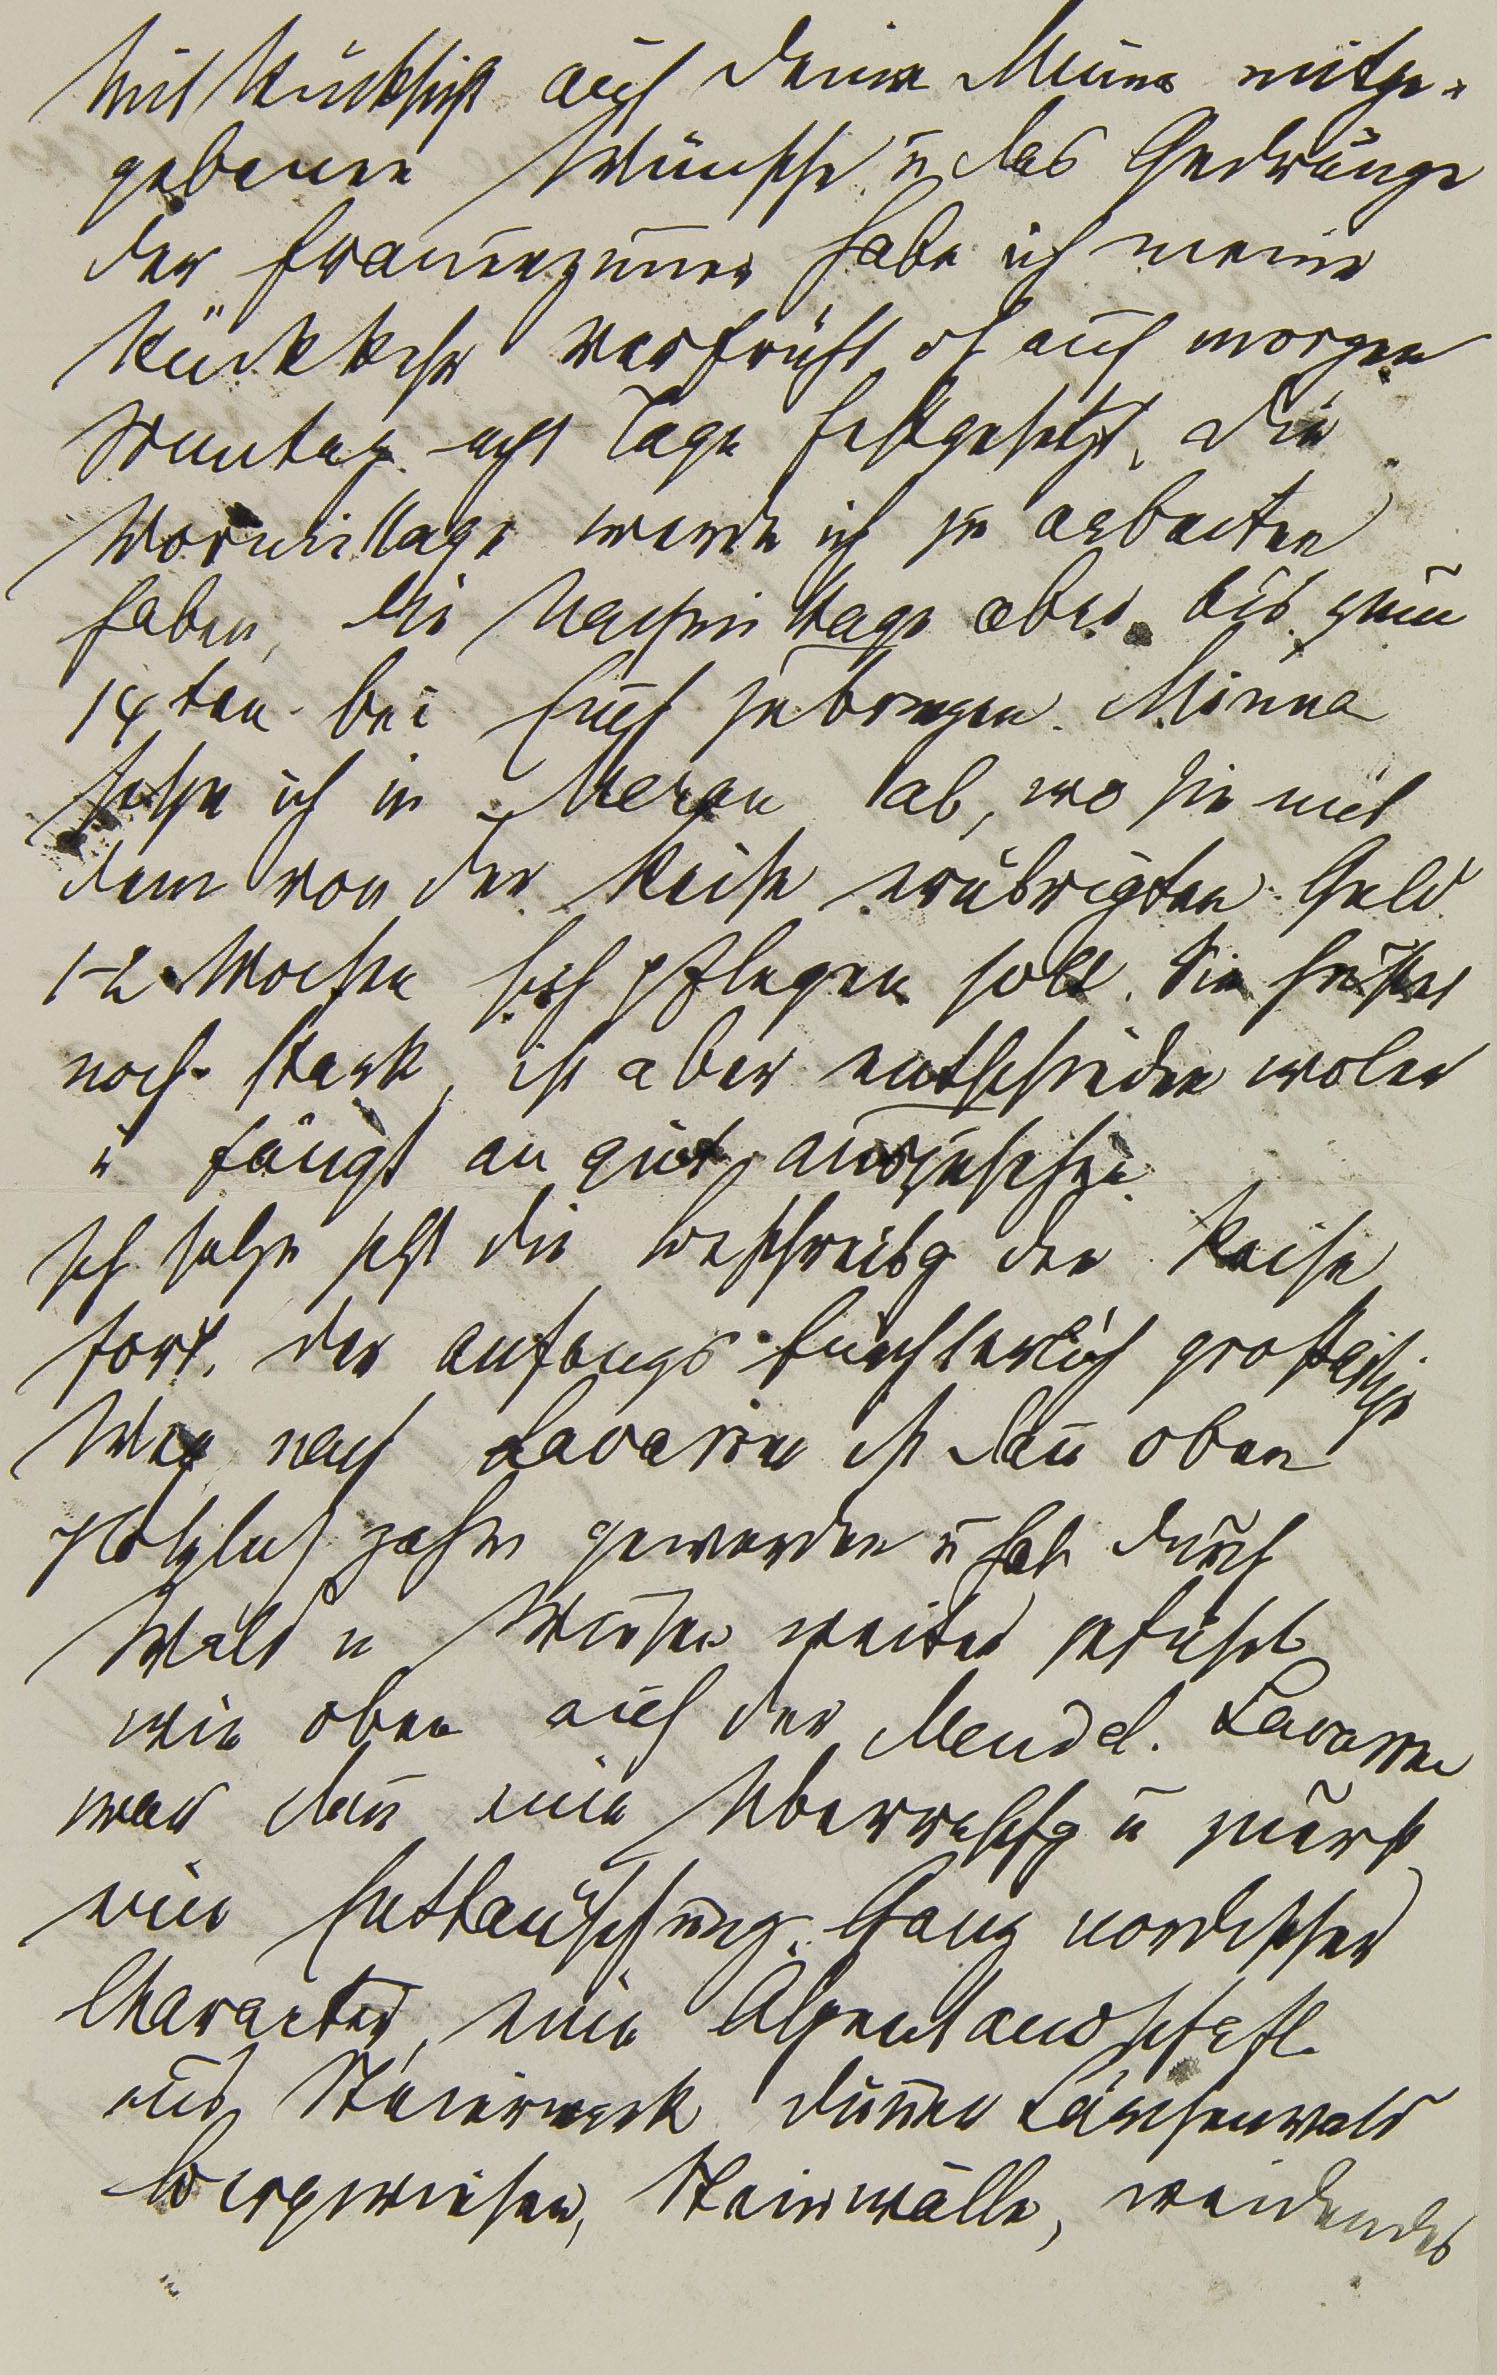 Mit Rücksicht auf deine Minna mitge-
gebenen Wünsche u das Gedränge
der Frauenzimmer habe ich meine
Rückkehr verfrüht u auf morgen
Sonntag acht Tage festgesetzt, die
Vormittage werde ich zu arbeiten
haben, die Nachmittage aber bis zum
14ten bei Euch zubringen. Minna
setze ich in Meran ab, wo sie mit
dem von der Reise erübrigten Geld
1–2 Wochen sich pflegen soll. Sie hustet
noch stark, ist aber entschieden woler
u fängt an gut auszusehen.
Ich setze jetzt die Beschreibg der Reise
fort. Der anfangs fürchterlich großartige
Weg nach Lavarone ist dann oben
plötzlich zahm geworden u hat durch
Wald u Wiesen weiter geführt
wie oben auf der Mendel. Lavarone
war dann eine Uberraschg u zuerst
eine Enttäuschung. Ganz nordischer
Charakter, eine Alpenlandschaft
aus Steiermark dünner Lärchenwald
Bergwiesen, Steinwälle, weidendes